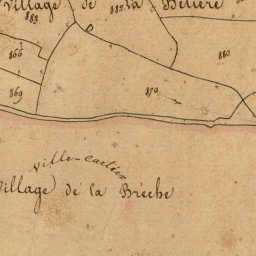 village de la Belière
883
882
866
880
869
870
Ville-Cartier
Village de la Brèche